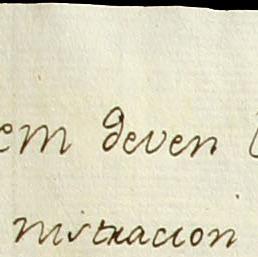 em deven
nistracion